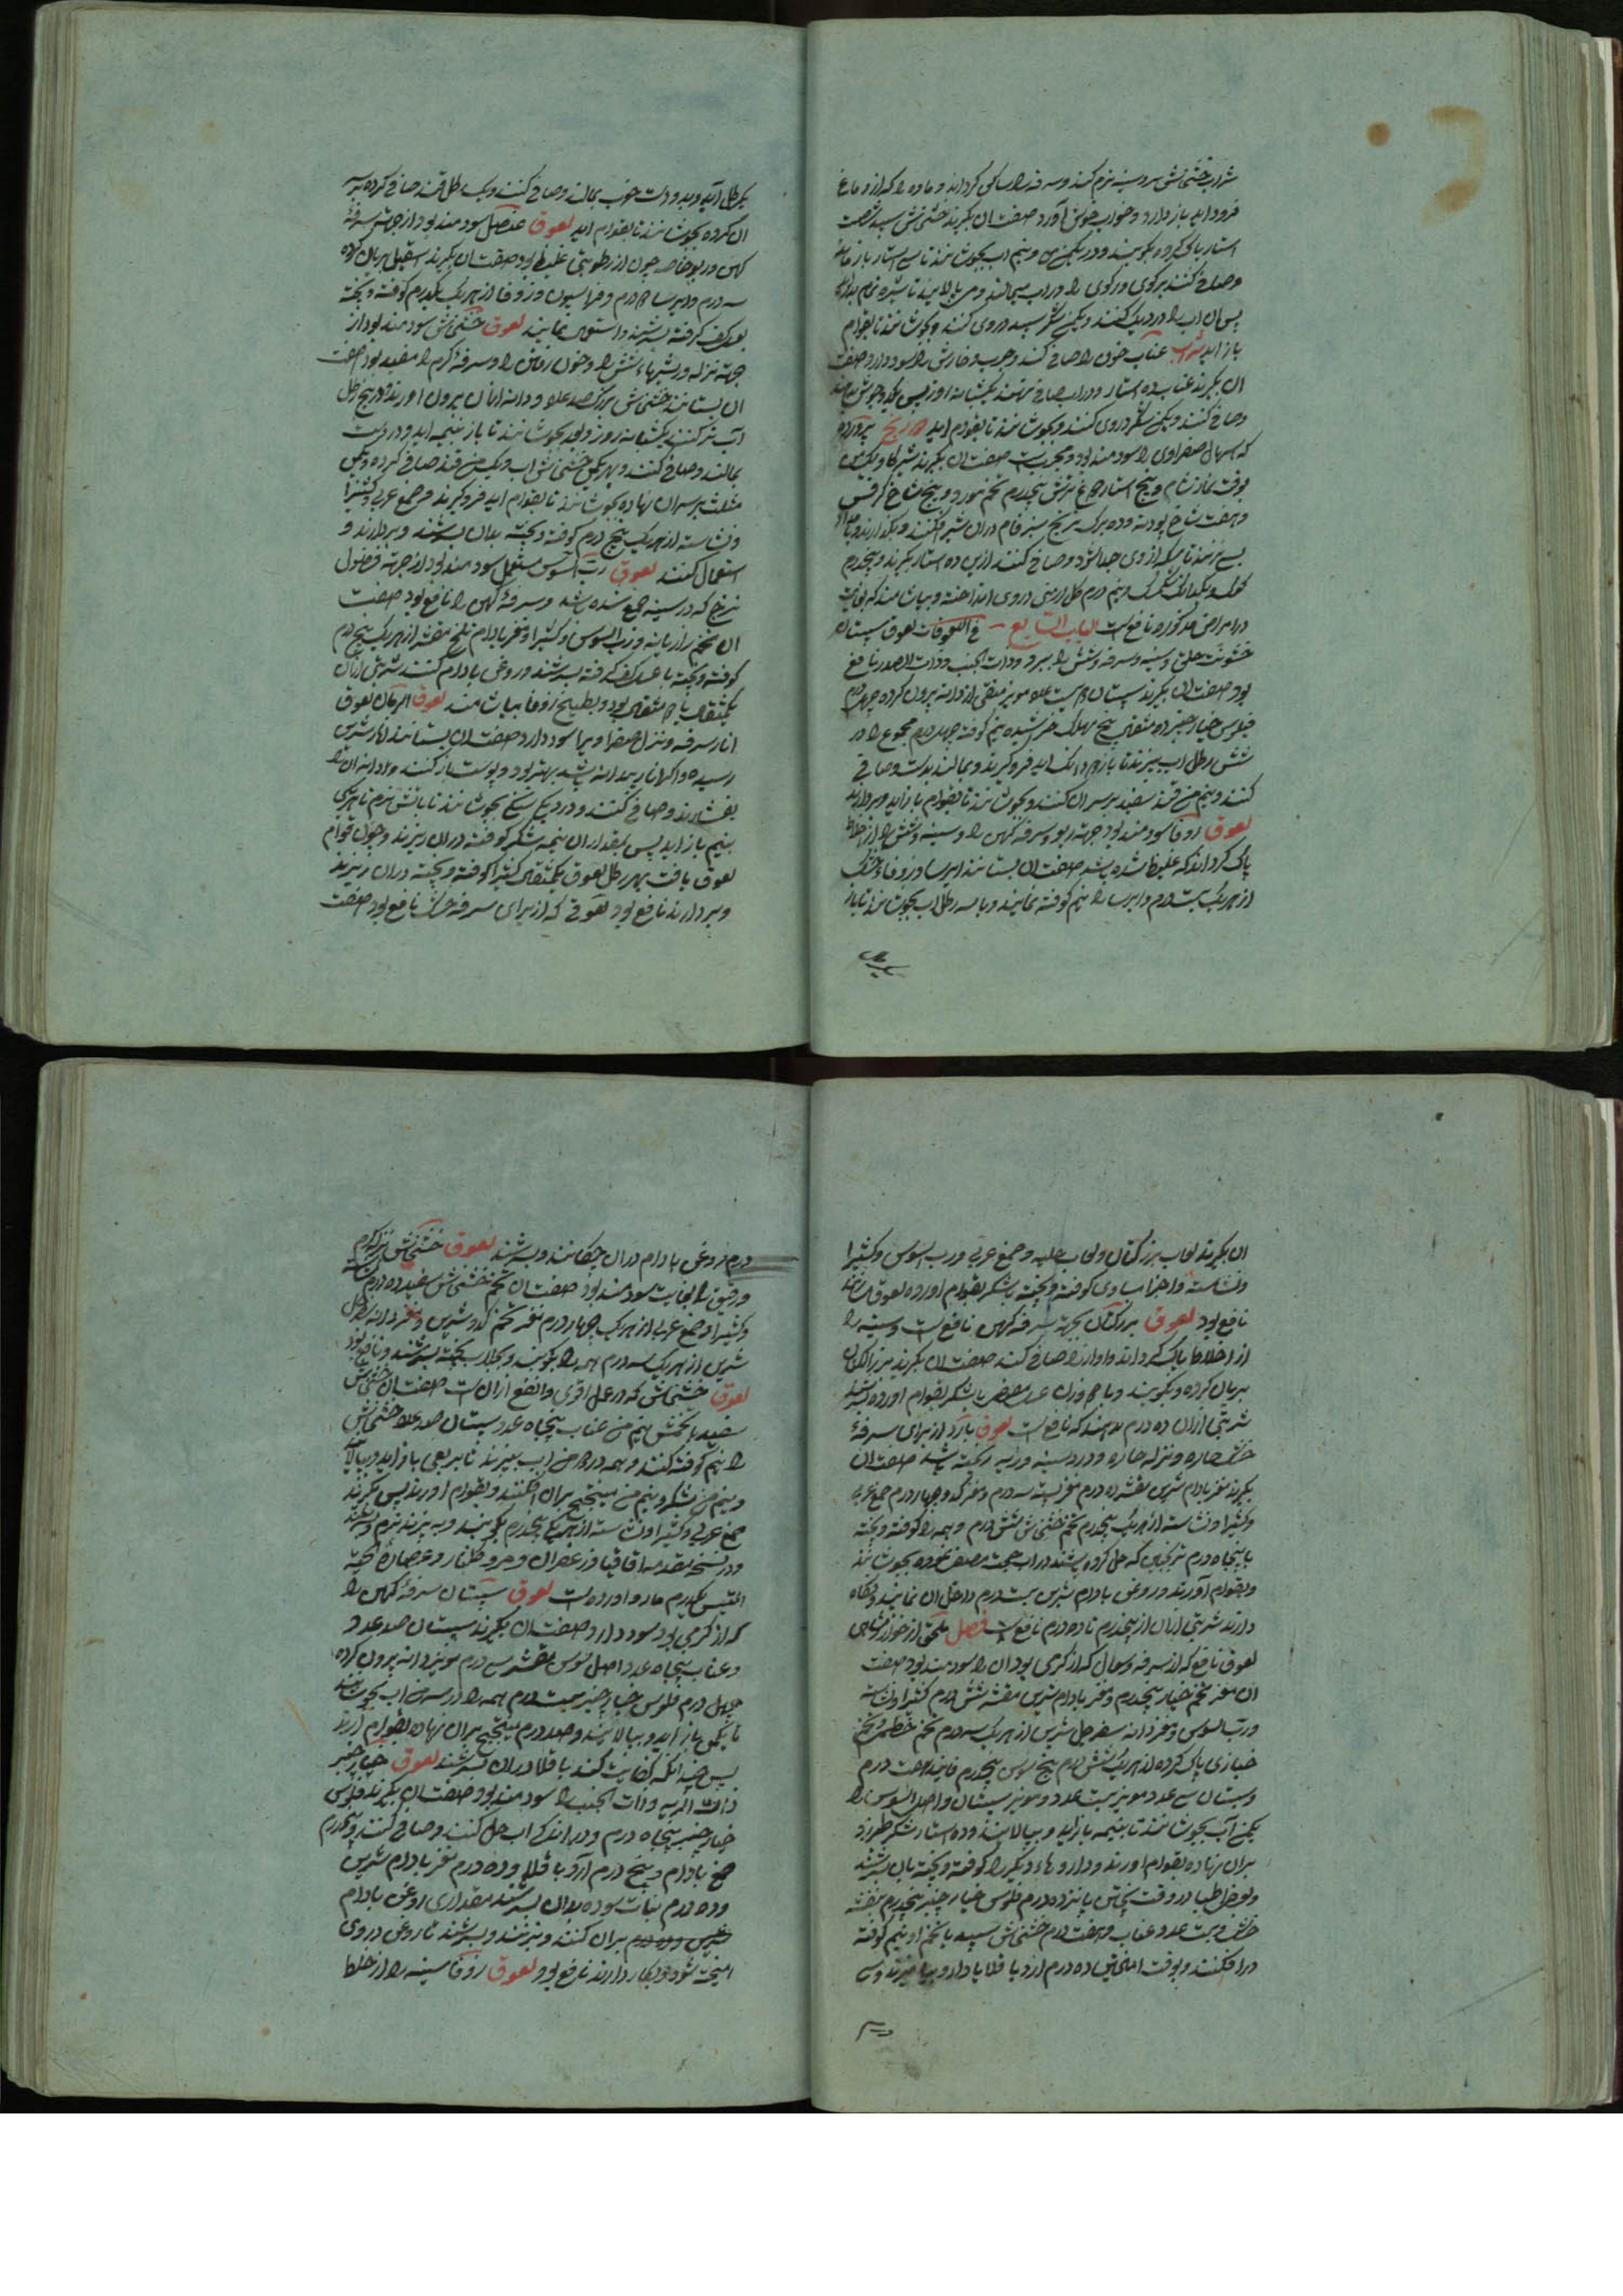 شراب خشخاش سر و سینه نرم کند و سرفه را ساکن گرداند و ماده را که از دماغ
فرود آید باز دارد و خواب خوش آورد صفت ان بگیرند خشخاش سپید شصت
استار پاک کرده بکوبند و در یکمن و نیم آب بجوشانند تا سی استار باز ماند
وصاف کنند
پس آن آب را در دیک کنند و یکمن شکر سپید در وی کنند و بجوشانند تا بقوام
باز آید شراب عناب خون را صافی کند و جرب و خارش را سود دارد صفت
ان بگیرند عناب ده استار و در آب صافی نهند یکشبانه روز پس
و صافی کنند و یکمن شکر در وی کنند و بجوشانند تا بقوام آید
که اسهال صفراوی را سودمند بود و مجربست صفت ان بگیرند شیر گاو یکمن
بوقت نماز شام و پنج استار ترش پنجدرم تخم مورد و پنج شاخ کرفس
و هفت شاخ پودنه و ده برگ ترنج سبز خام در ان شیر افکنند و بگذارند
بسیار زنند تا مسکه از وی جدا شود و صافی کنند ازین ده استار بگیرند و پنجدرم
و نیم درم گل ارمنی در وی انداخته و بیاشامند که بغایت
در امراض مذکوره نافع است الباب السابع فی اللعوقات لعوق سپستان
خشونت حلق و سینه و سرفه و شش را ببرد و ذات الجنب و ذات الصدر نافع
بود صفت ان بگیرند سپستان دویست عدد مویز منقی از دانه بیرون کرده چهل درم
فلوس خیارچنبر ده مثقال بیخ مهک خراشیده نیم کوفته چهار درم مجموع را در
شش رطل آب بپزند تا باز دو دانک آید فرو گیرند و بمالند بدست و صافی
کنند و نیم من قند سفید بر سر ان کنند و بجوشانند تا بقوام باز آید و بردارند
لعوق زوفا سودمند بود جهة ربو و سرفه کهن را و سینه و شش را از اخلاط
پاک گرداند که غلیظ شده باشد صفت ان بستانند ایرسا و زوفاء خشک
از هر یک بیست درم و ایرسا را نیم کوفته نمایند و با سه رطل آب بجوشانند تا باز
یکرطل آید و بدست خوب بمالند و صافی کنند و یک رطل قند صافی کرده بر سر
ان کرده بجوشانند تا بقوام آید لعوق عنصل سودمند بود از جهة سرفهٔ
کهن و ربو خاصه چون از رطوبتی غلیظ بود صفت ان بگیرند اسقیل بریان کرده
سه درم و ایرسا دو درم و فراسیون و زوفا از هر یک یکدرم کوفته و بیخته
بعسل کف گرفته بسرشند و استعمال نمایند لعوق خشخاش سودمند بود از
جهة نزله و ریشهاء شش را و خون رفتن را و سرفه گرم را مفید بود صفت
ان بستانند خشخاش بزرک صد عدد و دانه آنان بیرون آورند و در پنج رطل
آب تر کنند یکشبانه روز و بعد بجوشانند تا باز بنیمه آید و بدست
بمالند و صافی کنند و بهر یکمن خشخاش آب و یک من قند صافی کرده و یکمن
مثلث بر سر ان نهاده بجوشانند تا بقوام آید فرو گیرند صمغ عربی و کتیرا
و نشاسته از هر یک پنج درم کوفته و بیخته بدان بسرشند و بردارند و
استعمال کنند لعوق رب السوس مستعمل سودمند بود از جهة فضول
لزج که در سینه جمع شده باشد و سرفهٔ کهن را نافع بود صفت
ان تخم رازیانه و رب السوس و کتیرا و مغز بادام تلخ مقشر از هر یک پنج درم
کوفته و بیخته با عسل کف گرفته بسرشند و روغن بادام کنند شربتی از ان
یکمثقال یا دو مثقال بود و بطبیخ زوفا بیاشامند لعوق الرمان لعوق
انار سرفه و نزل صفراوی را سود دارد صفت ان بستانند انار شیرین
رسیده و اگر انار بیدانه باشد بهتر بود و پوست باز کنند و دانه ان را
بفشارند و صافی کنند و در دیک سنگین بجوشانند تا بآتش نرم تا بیک
بنیم باز آید پس بمقدار ان نیمه شکر کوفته در ان ریزند و چون قوام
لعوق یافت بهر رطل لعوق یکمثقال کتیرا کوفته و بیخته در ان ریزند
و بردارند نافع بود لعوقی که از برای سرفه خشک نافع بود صفت
ان بگیرند لعاب بزر کتان و لعاب حلبه و صمغ عربی و رب السوس و کتیرا
و نشاسته و اجزا مساوی کوفته و بیخته با شکر بقوام آورده لعوق سازند
نافع بود لعوق بزر کتان بجهة سرفه کهن نافع است و سینه را
از اخلاط پاک گرداند و آواز را صافی کند صفت ان بگیرند بزر الکتان
بریان کرده و بکوبند و با هم وزن عسل مصفی یا شکر بقوام آورده بسرشند
شربتی از ان ده درم بدهند که نافع است لعوق بارد از برای سرفهٔ
خشک حاره و نزله حاره و درد سینه و ریه ریخته باشد صفت ان
بگیرند مغز بادام شیرین مقشر ده درم مغز پسته سه درم و مغز کدو چهار درم صمغ عربی
و کتیرا و نشاسته از هر یک پنجدرم تخم خشخاش شش درم و همه را کوفته و بیخته
با پنجاه درم ترنجبین که حل کرده باشند در آب صاف نموده بجوشانند
و بقوام آورند و روغن بادام شیرین بیست درم داخل ان نمایند و نگاه
دارند شربتی از ان از پنجدرم تا ده درم نافع است فصل ملحق از خوارزمشاهی
لعوق نافع که از سرفه و سعال که از گرمی بود ان را سودمند بود صفت
ان مغز تخم خیار پنجدرم و مغز بادام شیرین مقشر شش درم کتیرا و نشاسته
و رب السوس و مغز دانه سفرجل شیرین از هر یک سه درم تخم خطمی و تخم
خبازی پاک کرده از هر یک شش درم بیخ سوس پنجدرم فانیذ هفت درم
و سپستان سی عدد مویز بیست عدد و مویز سپستان و اصل السوس را
یکمن آب بجوشانند تا بنیمه باز آید و بپالایند و ده استار شکر طبرزد
بر ان نهاده بقوام آورند و داروهاء دیگر را کوفته و بیخته بان بسرشند
و بعضی اطبا در وقت پختن پانزده درم فلوس خیارچنبر پنجدرم بنفشه
خشک و بیست عدد عناب و هفت درم خشخاش سپید با تخم او نیم کوفته
در افکنند و بوقت امیختن ده درم ارد باقلا با دارو بیامیزند و سی
درم روغن بادام در ان چکانند و بسرشند لعوق خشخاش نزله گرم
و رقیق را بغایت سودمند بود صفت ان تخم خشخاش سفید ده درم
و کتیرا و صمغ عربی از هر یک چهار درم مغز تخم کدو شیرین و مغز دانه سفرجل
شیرین از هر یک سه درم همه را بکوبند و بجلاب پخته بسرشند و نافع بود
لعوق خشخاش که در عمل اقوی و انفع از ان است صفت ان خشخاش
سفید با تخمش نیم من عناب پنجاه عدد سپستان صد عدد خشخاش
را نیم کوفته کنند و همه در دو من آب بپزند تا بربعی باز آید و بپالایند
و نیم من شکر و نیم من میبختج بر ان افکنند و بقوام آورند پس بگیرند
صمغ عربی و کتیرا و نشاسته از هر یک پنجدرم بکوبند و بپزند نرم و بسرشند
و در نسخه مقدمه اقاقیا و زعفران و مر و گلنار و عصارهٔ لحیة
التیس یکدرم آورده است لعوق سپستان سرفهٔ کهن را
که از گرمی بود سود دارد صفت ان بگیرند سپستان صد عدد
و عناب پنجاه عدد اصل سوس مقشر سی درم مویز دانه بیرون کرده
چهل درم فلوس خیارچنبر بیست درم همه را در سه من آب بجوشانند
تا یکمن باز آید و بپالایند و صد درم میبختج بر ان نهاده بقوام آرند
پس چندانکه کفایت کند باقلا در ان بسرشند لعوق خیارچنبر
ذات الریه و ذات الجنب را سودمند بود صفت ان بگیرند فلوس
خیارچنبر پنجاه درم و در اندک آب حل کنند و صافی کنند و پنجدرم
صمغ بادام و پنج درم آرد باقلا و ده درم مغز بادام شیرین
و ده درم نبات سوده بدان بسرشند مقداری روغن بادام
شیرین بر ان کنند و بزنند و بسرشند تا روغن در وی
امیخته شود و بکار دارند نافع بود لعوق زوفا سینه را از خلط